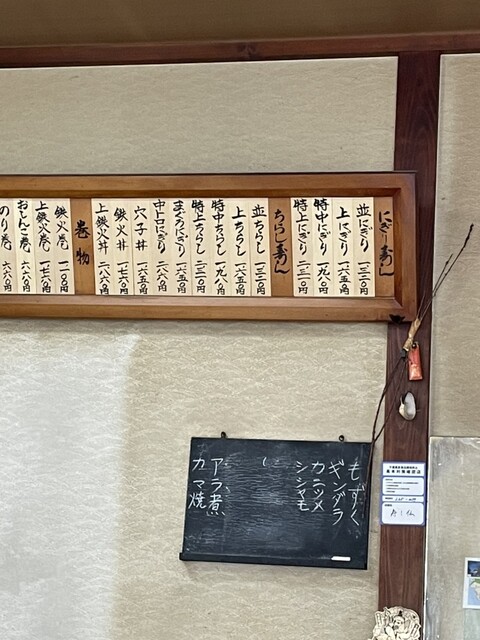 にぎり寿し
並にぎり 一三二〇円
上にぎり 一六五〇円
特中にぎり 一九八〇円
特上にぎり 二三一〇円
ちらし寿し
並ちらし 一三二〇円
上ちらし 一六五〇円
特中ちらし 一九八〇円
特上ちらし 二三一〇円
まぐろにぎり 二六五〇円
中トロにぎり 二八六〇円
穴子丼 一六五〇円
鉄火丼 一七六〇円
上鉄火丼 二八六〇円
巻物
鉄火巻 一一〇〇円
上鉄火巻 一七六〇円
おしんこ巻 六六〇円
のり巻 六六〇円
もずく
ギンダラ
カニツメ
シシャモ
アラ煮
カマ焼